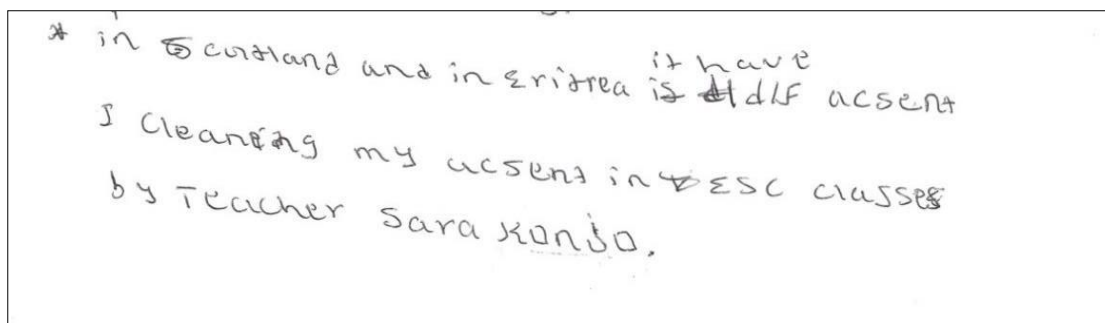 * in Scurtland and in Eritrea it have dif acsent
I cleaning my acsent in ESC classes
by Teacher Sara Konjo.